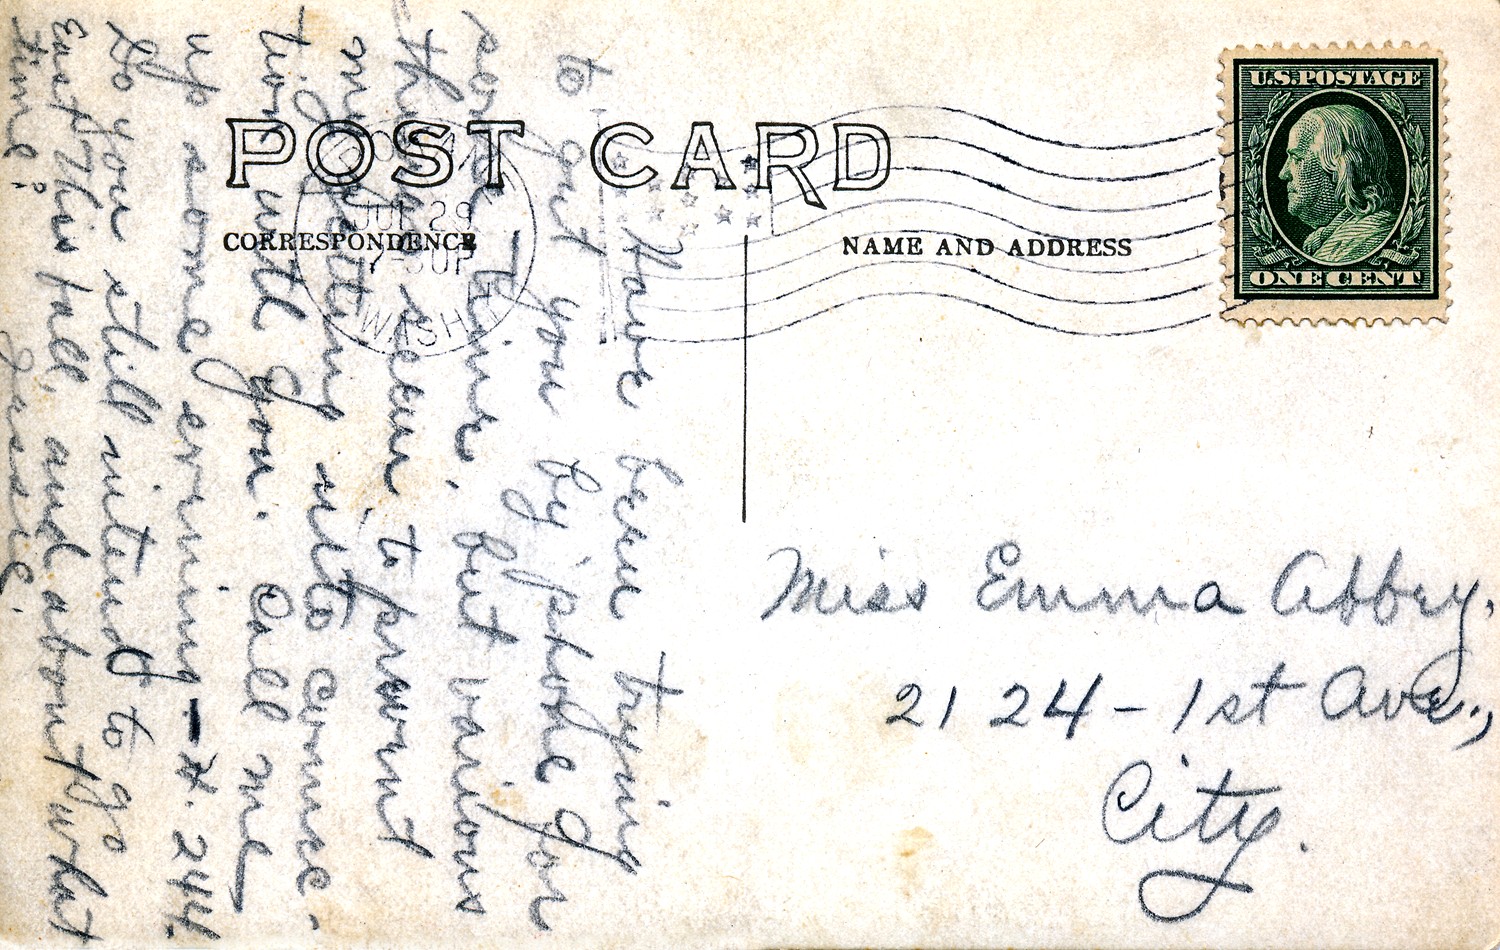 POST CARD
CORRESPONDENCE
NAME AND ADDRESS
U.S. POSTAGE
ONE CENT
29
7-30P
WASH
Have been trying
to get you by 'phone for
some time, but various
things seem to prevent
my getting into connec-
tion with you. Call me
up some evening - H. 244.
Do you still intend to go
East this fall, and about what
time?
Jessie.
Miss Emma Abbey,
2124 - 1st Ave.,
City.